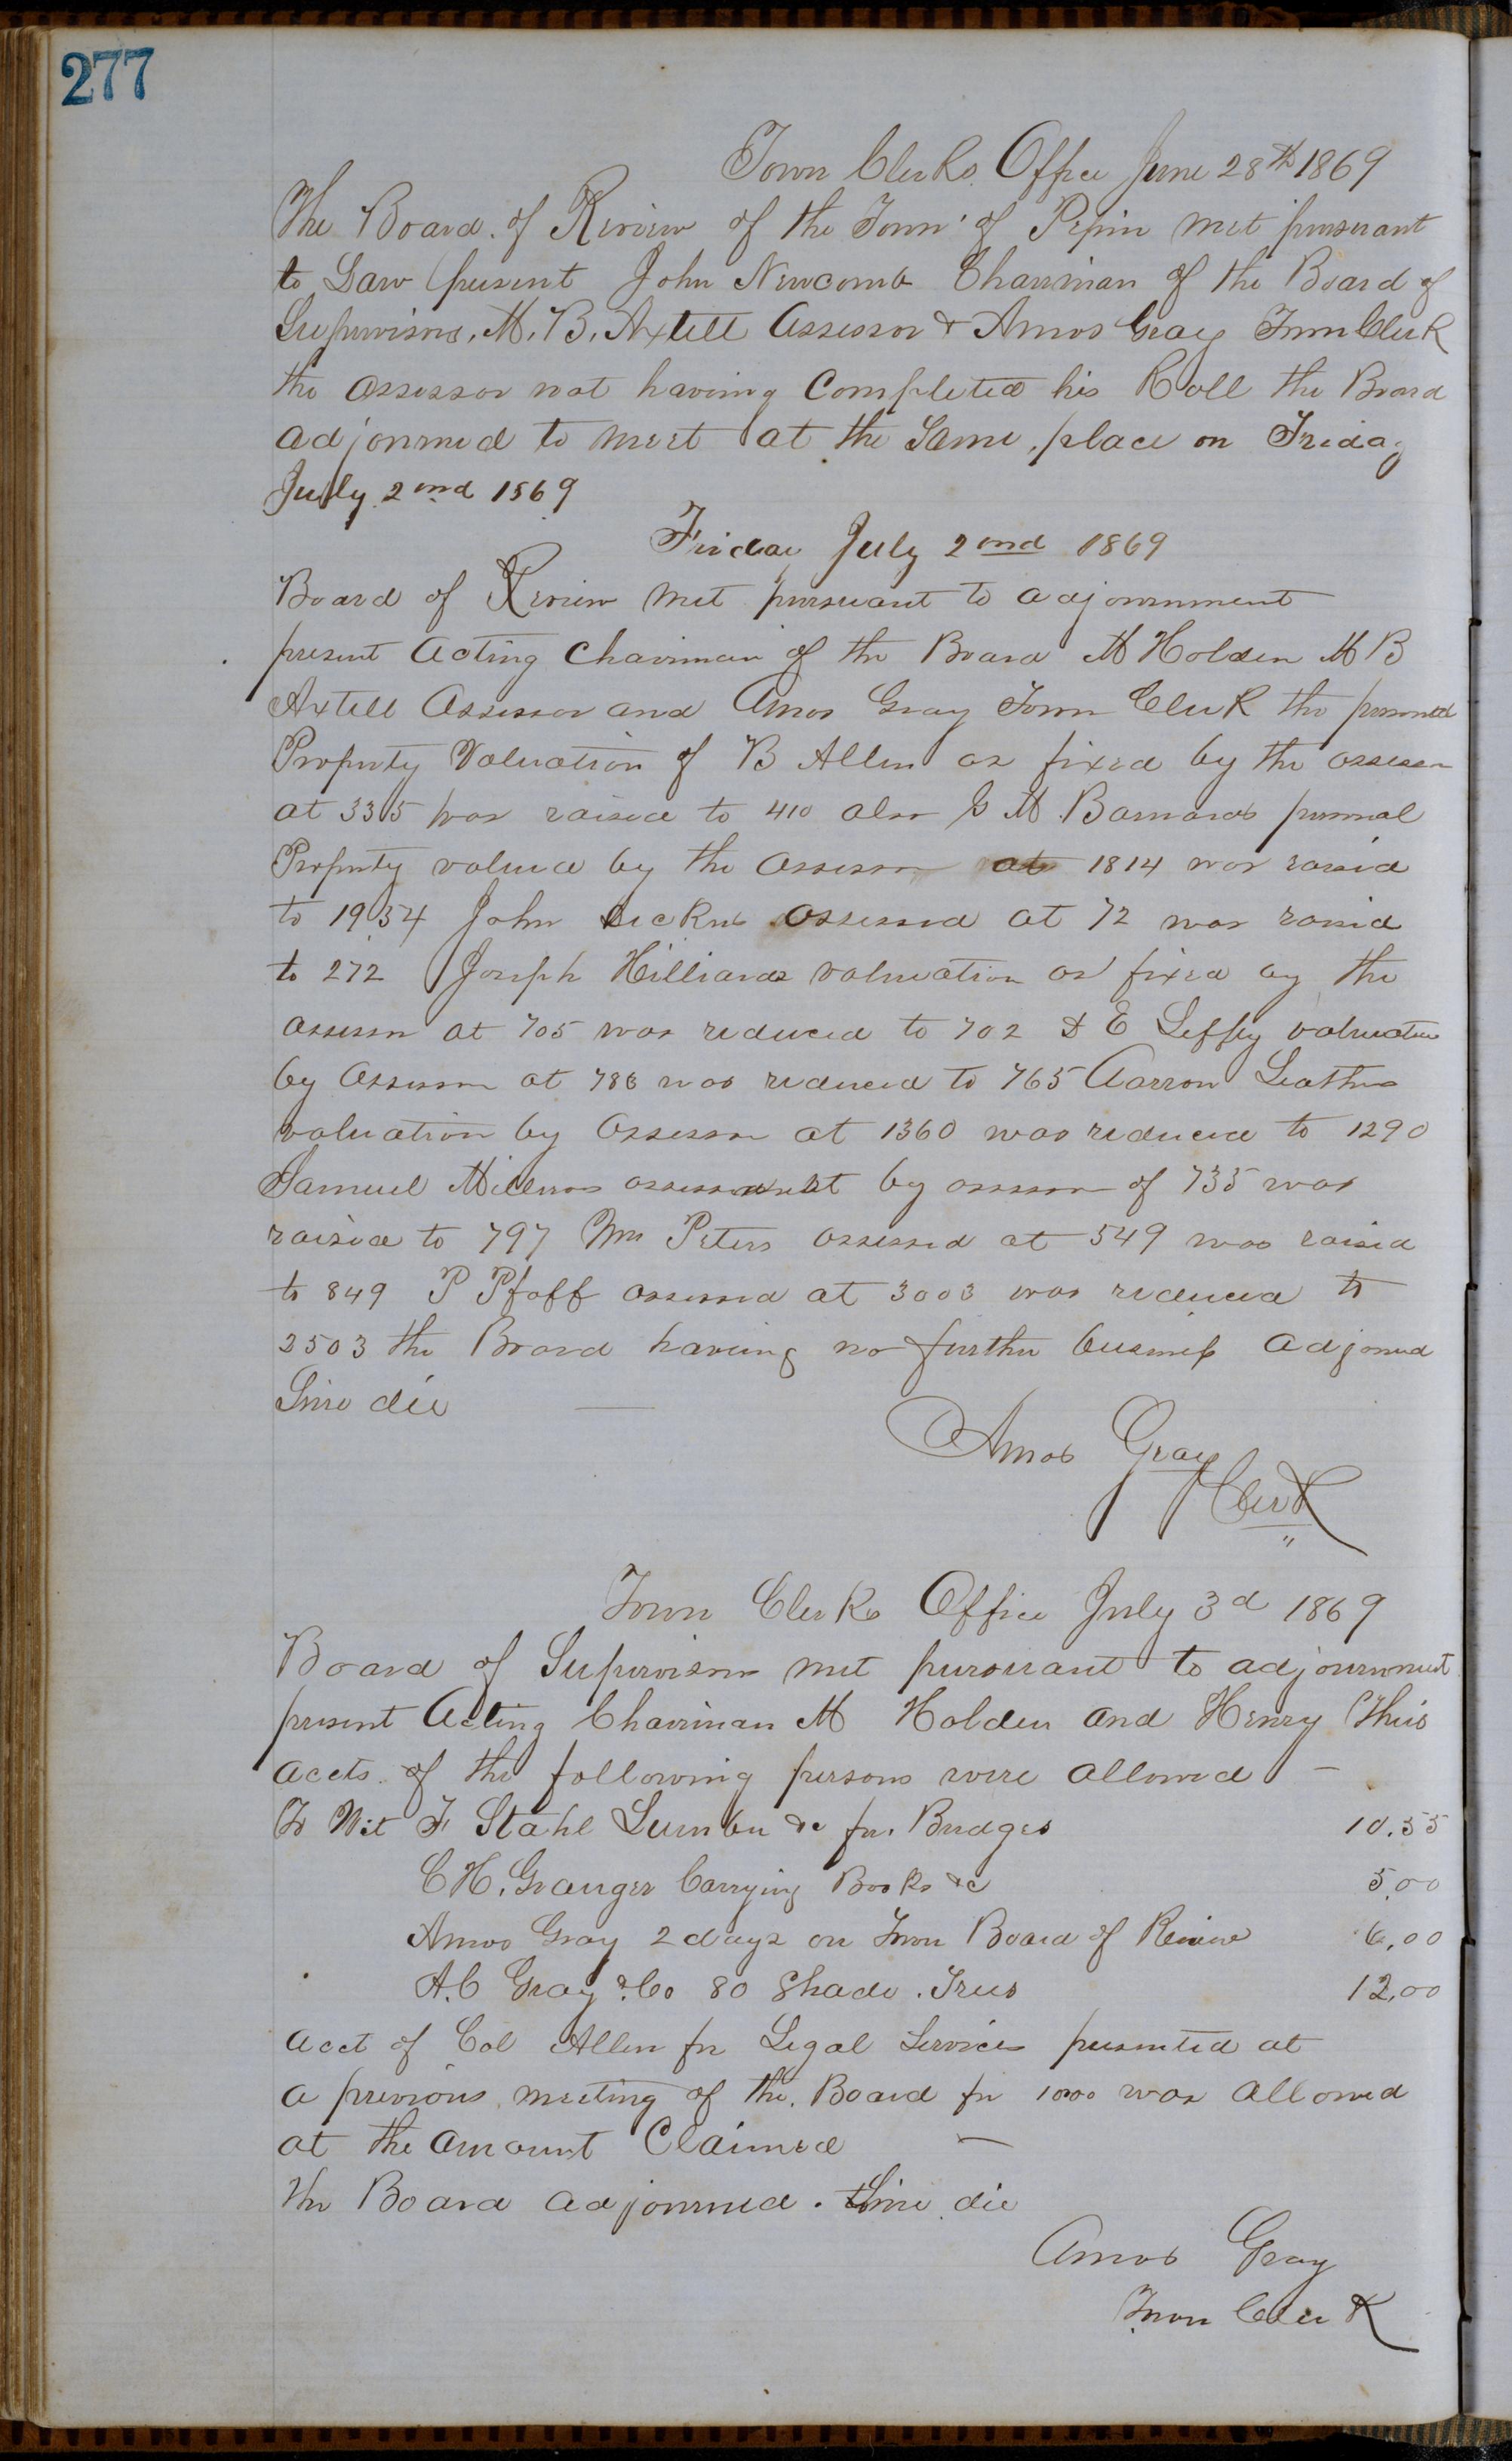 277
Town Clerks Office June 28th 1869
The Board of Review of the Town of Pepin met pursuant
to Law present John Newcomb Chairman of the Board of
Supervisors, M. B. Axtell Assessor & Amos Gray Town Clerk
the assessor not having Completed his Roll the Board
adjourned to meet at the Same place on Friday
July 2nd 1869
Friday July 2nd 1869
Board of Review met pursuant to adjournment
present Acting Chairman of the Board M Holden M B
Axtell Assessor and Amos Gray Town Clerk the personal
Property Valuation of B Allen as fixed by the assessor
at 335 was raised to 410 also M Barnards personal
Property valued by the Assessor at 1814 was raised
to 1934 John assessed at 72 was raised
to 272 Joseph Hilliards valuation as fixed by the
assessor at 705 was reduced to 702 E valuation
by Assessor at was reduced to 765 Aarron
valuation by Assessor at 1360 was reduced to 1290
Samuel assessment by assessor of 735 was
raised to 797 Wm Peters assessed at 549 was raised
to 849 P Pfaff assessed at 3003 was reduced to
2503 the Board having no further business adjourned
Sine die
Amos Gray
Clerk
Town Clerks Office July 3d 1869
Board of Supervisors met pursuant to adjournment
present Acting Chairman M Holden and Henry
accts of the following persons were allowed
To Wit F Stahl Lumber &c for Bridges 10.55
C H. Granger Carrying Books &c 5.00
Amos Gray 2 days on Town Board of Review 6.00
A. C Gray & Co 80 Shade Trees 12.00
acct of Col Allen for Legal Services presented at
a previous meeting of the Board for 1000 was allowed
at the amount Claimed
the Board adjourned Sine die
Amos Gray
Town Clerk